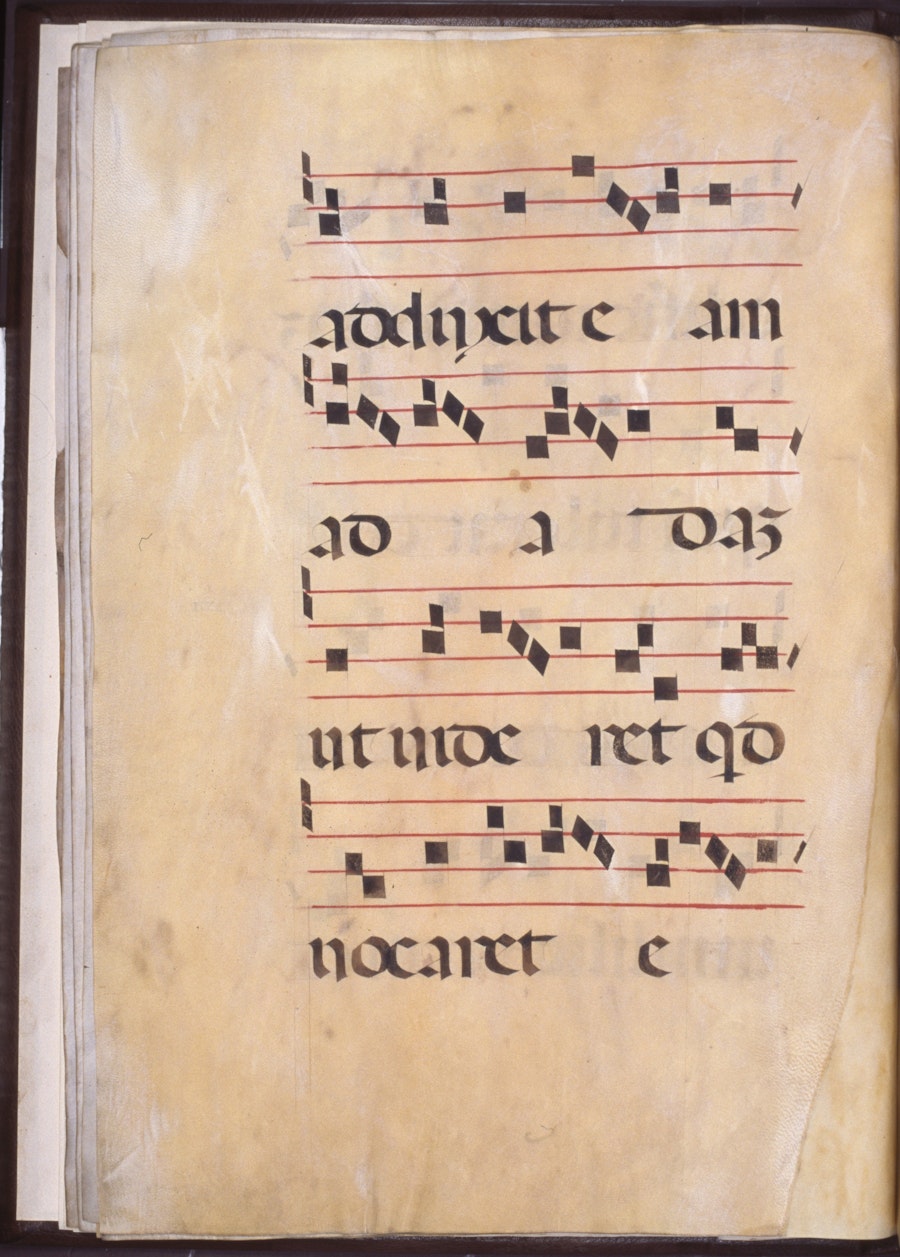 adduxit e am
ad a daʒ
ut uide ret qd
uocaret e